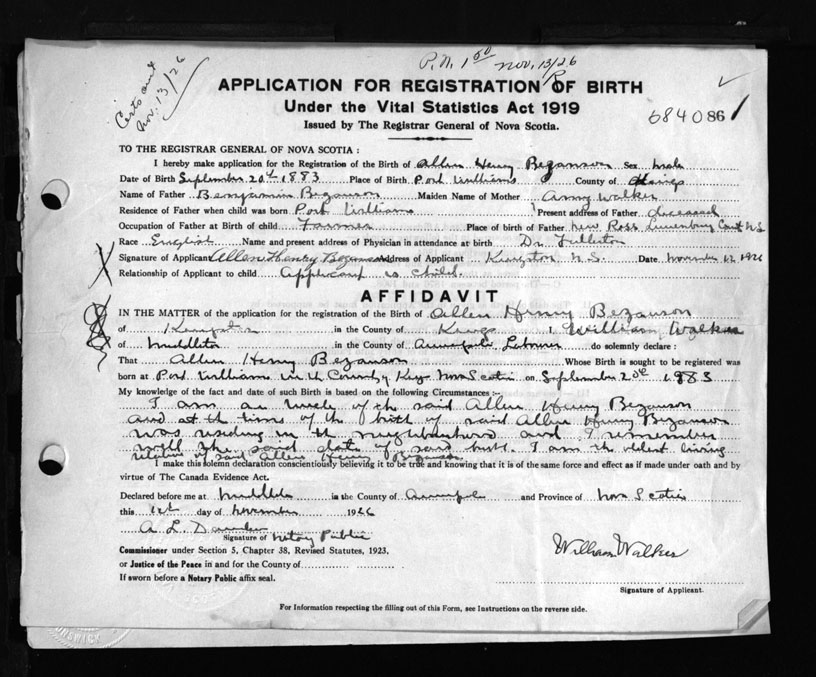 P.N. 1 50 Nov. 13/26
Certs and
Nov. 13/26
APPLICATION FOR REGISTRATION OF BIRTH
Under the Vital Statistics Act 1919
Issued by The Registrar General of Nova Scotia.
684086 1
TO THE REGISTRAR GENERAL OF NOVA SCOTIA :
I hereby make application for the Registration of the Birth of Allen Henry Bezanson Sex Male
Date of Birth September 20th 1883 Place of Birth Port Williams County of Kings
Name of Father Benjamin Bezanson Maiden Name of Mother Annie Walker
Residence of Father when child was born Port Williams Present address of Father deceased
Occupation of Father at Birth of child Farmer Place of birth of Father New Ross Lunenburg County N.S
Race English Name and present address of Physician in attendance at birth Dr. Fullerton
Signature of Applicant Allen Henry Bezanson Address of Applicant Kingston N.S. Date November 12, 1926
Relationship of Applicant to child Applicant is child.
AFFIDAVIT
IN THE MATTER of the application for the registration of the Birth of Allen Henry Bezanson
of Kingston in the County of Kings I, William Walker
of Middleton in the County of Annapolis, Laborer do solemnly declare :
That Allen Henry Bezanson Whose Birth is sought to be registered was
born at Port Williams in the County of Kings Nova Scotia on September 20th 1883
My knowledge of the fact and date of such Birth is based on the following Circumstances :-
I am an uncle of the said Allen Henry Bezanson
and at the time of the birth of said Allen Henry Bezanson
was residing in the neighbourhood and I remember
well the said date of said birth. I am the oldest living
relative of said Allen Henry Bezanson
I make this solemn declaration conscientiously believing it to be true and knowing that it is of the same force and effect as if made under oath and by
virtue of The Canada Evidence Act.
Declared before me at Middleton in the County of Annapolis and Province of Nova Scotia
this 12th day of November 1926
A. L.
Signature of Notary Public
Commissioner under Section 5, Chapter 38, Revised Statutes, 1923.
or Justice of the Peace in and for the County of
If sworn before a Notary Public affix seal.
William Walker
Signature of Applicant.
For Information respecting the filling out of this Form, see Instructions on the reverse side.